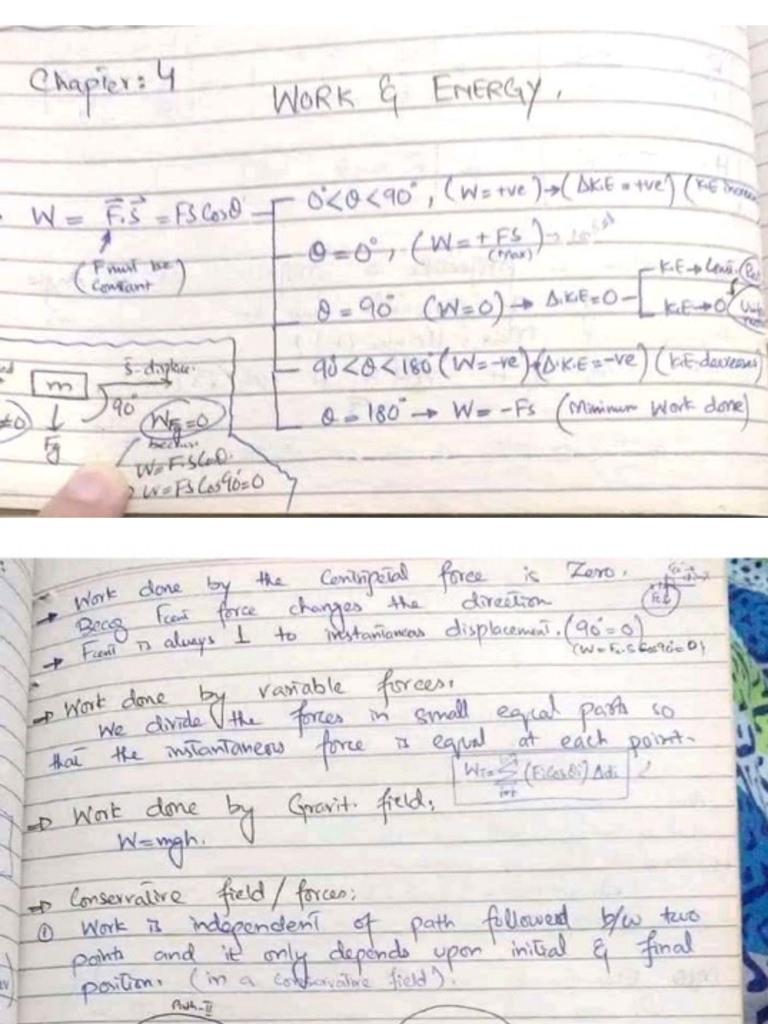 Chapter: 4
WORK & ENERGY.
W = F⃗.S⃗ = FS Cosθ
(F must be constant)
0°<θ<90°, (W = +ve) → (ΔK.E = +ve) (K.E increases
θ = 0°, (W = + FS) (Max)
θ = 90° (W=0) → Δ.K.E = 0
K.E → Cons.
K.E → 0
90°<θ<180° (W=-ve) (Δ.K.E = -ve) (K.E decreases)
θ = 180° → W = - FS (Minimum Work done)
m
S-displac.
90°
Fg
WFg = 0
W = F.S Cosθ.
W = FS Cos90° = 0
→ Work done by the Centripetal force is Zero.
Becaz Fcent force changes the direction
→ Fcent is always ⊥ to instantaneous displacement. (90° = 0)
(W = Fc.S Cos90° = 0)
⇒ Work done by variable forces.
We divide the forces in small equal parts so
that the instantaneous force is equal at each point.
⇒ Work done by Gravit. field;
W = mgh.
⇒ Conservative field / forces:
① Work is independent of path followed b/w two
points and it only depends upon initial & final
position. (in a conservative field).
Path-II